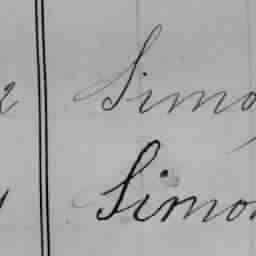 2 Simo
Simon